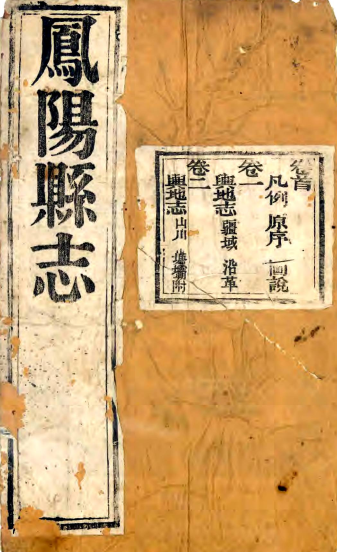 鳳陽縣志
卷首
凡例 原序 圖說
卷一
輿地志 疆域 沿革
卷二
輿地志 山川